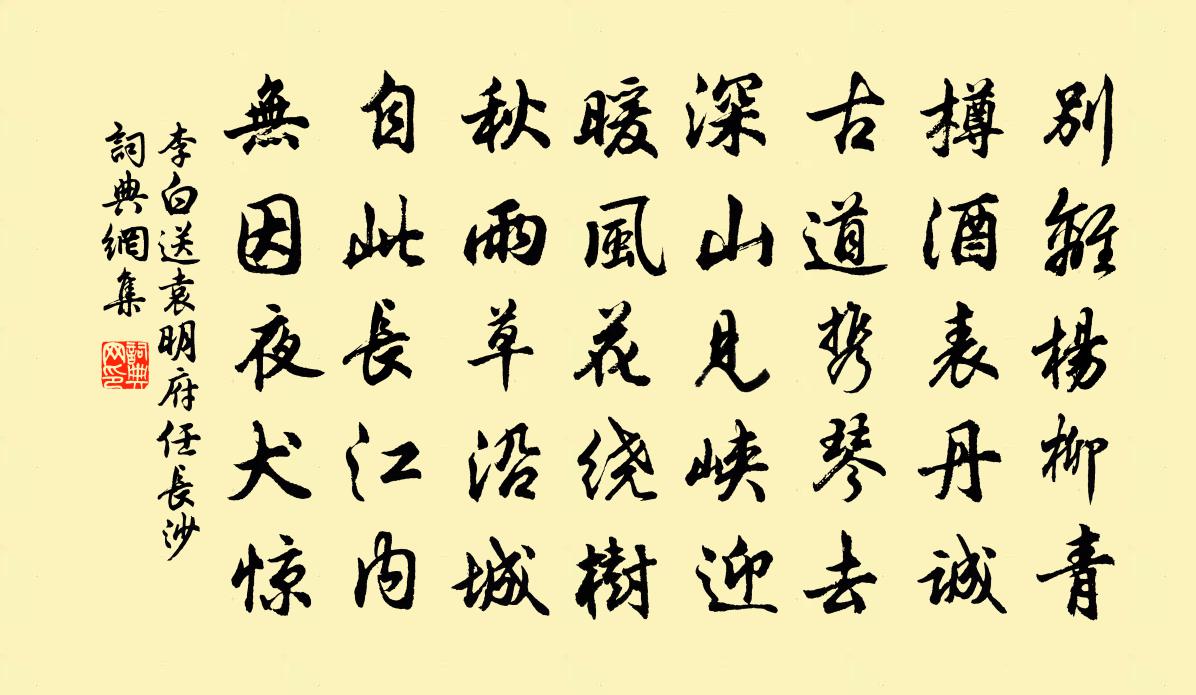 别離楊柳青
樽酒表丹诚
古道携琴去
深山見峡迎
暖風花绕樹
秋雨草沿城
自此長江内
無因夜犬惊
李白送袁明府任長沙
詞典網集
詞典网印